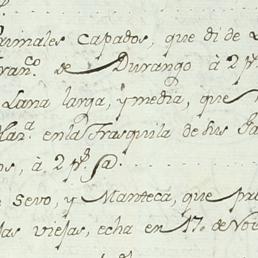 nimales capados, que di de
Fran.co de Durango à 2 p.s
Lana larga, y media, que
Mar.a en la Trasquila de sus
os, à 2 p.s @.
Sevo, y Manteca, que
las viejas, echa en 17. de Nov